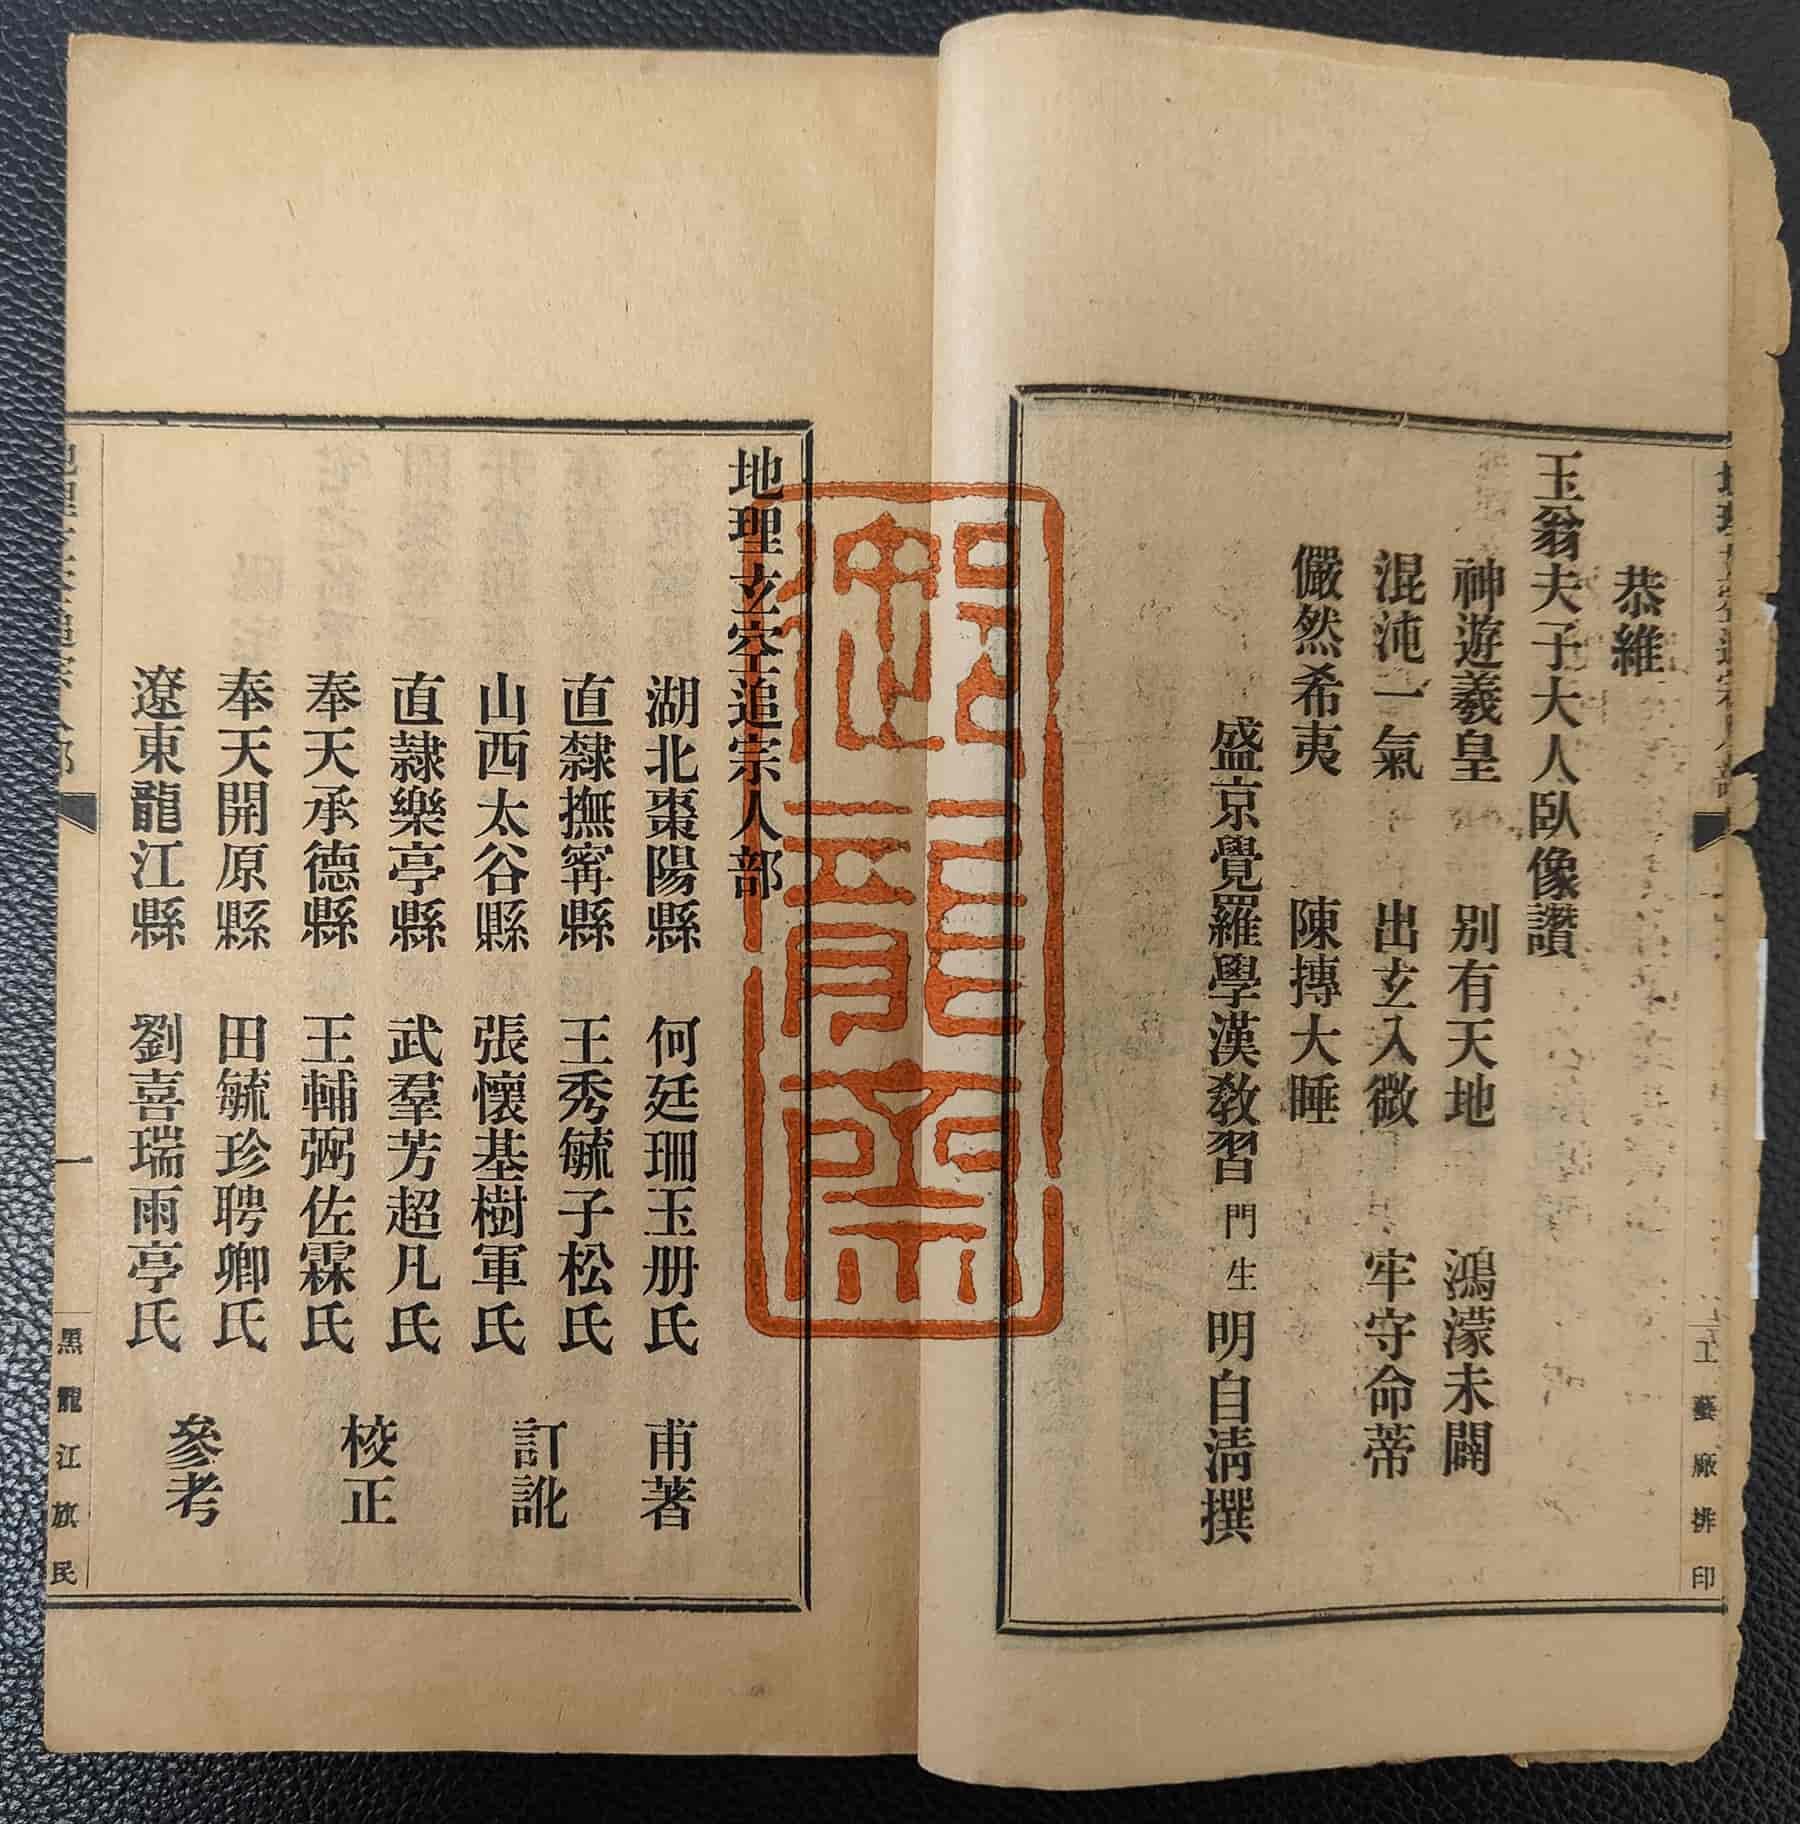 工藝廠排印
恭維
玉翁夫子大人臥像讚
神遊羲皇 别有天地 鴻濛未闢
混沌一氣 出玄入微 牢守命蒂
儼然希夷 陳摶大睡
盛京覺羅學漢教習門生明自清撰
地理玄空追宗人部
湖北棗陽縣 何廷珊玉册氏 甫著
直隸撫甯縣 王秀毓子松氏
山西太谷縣 張懷基樹軍氏
訂訛
直隷樂亭縣 武羣芳超凡氏
奉天承德縣 王輔弼佐霖氏
校正
奉天開原縣 田毓珍聘卿氏
遼東龍江縣 劉喜瑞雨亭氏
參考
一 黑龍江旗民